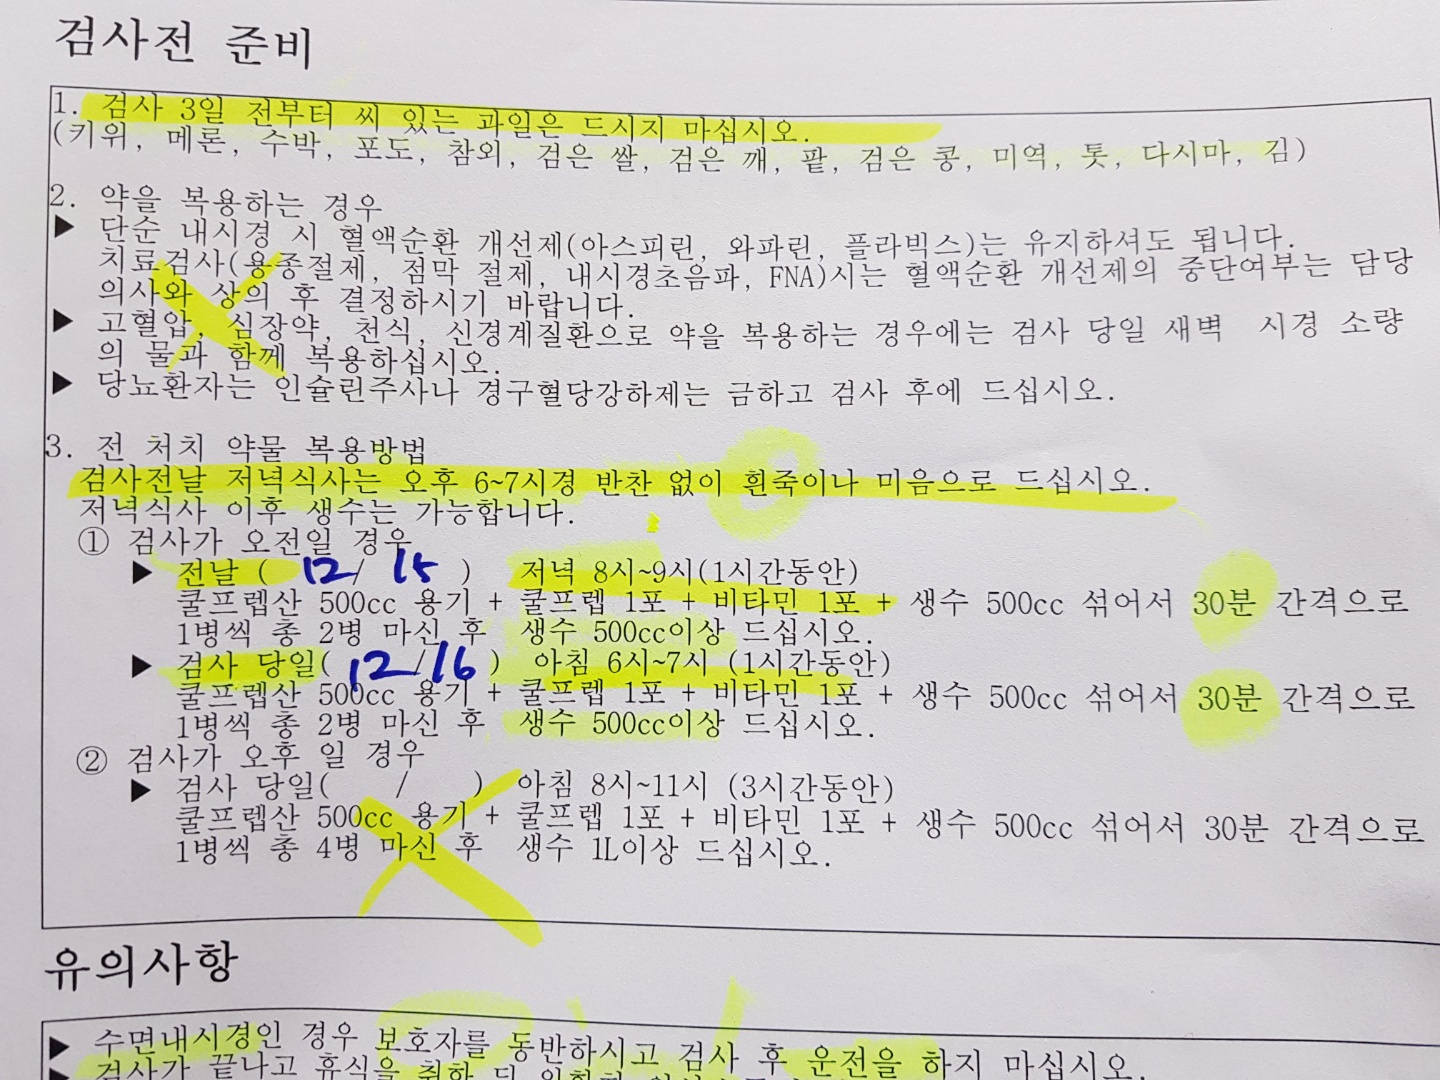 검사전 준비
1. 검사 3일 전부터 씨 있는 과일은 드시지 마십시오.
(키위, 메론, 수박, 포도, 참외, 검은 쌀, 검은 깨, 팥, 검은 콩, 미역, 톳, 다시마, 김)
2. 약을 복용하는 경우
▶ 단순 내시경 시 혈액순환 개선제(아스피린, 와파린, 플라빅스)는 유지하셔도 됩니다.
치료검사(용종절제, 점막 절제, 내시경초음파, FNA)시는 혈액순환 개선제의 중단여부는 담당
의사와 상의 후 결정하시기 바랍니다.
▶ 고혈압, 심장약, 천식, 신경계질환으로 약을 복용하는 경우에는 검사 당일 새벽 시경 소량
의 물과 함께 복용하십시오.
▶ 당뇨환자는 인슐린주사나 경구혈당강하제는 금하고 검사 후에 드십시오.
3. 전 처치 약물 복용방법
검사전날 저녁식사는 오후 6~7시경 반찬 없이 흰죽이나 미음으로 드십시오.
저녁식사 이후 생수는 가능합니다.
① 검사가 오전일 경우
▶ 전날 ( 12/ 15 ) 저녁 8시~9시(1시간동안)
쿨프렙산 500cc 용기 + 쿨프렙 1포 + 비타민 1포 + 생수 500cc 섞어서 30분 간격으로
1병씩 총 2병 마신 후 생수 500cc이상 드십시오.
▶ 검사 당일( 12/16 ) 아침 6시~7시 (1시간동안)
쿨프렙산 500cc 용기 + 쿨프렙 1포 + 비타민 1포 + 생수 500cc 섞어서 30분 간격으로
1병씩 총 2병 마신 후 생수 500cc이상 드십시오.
② 검사가 오후 일 경우
▶ 검사 당일( / ) 아침 8시~11시 (3시간동안)
쿨프렙산 500cc 용기 + 쿨프렙 1포 + 비타민 1포 + 생수 500cc 섞어서 30분 간격으로
1병씩 총 4병 마신 후 생수 1L이상 드십시오.
유의사항
▶ 수면내시경인 경우 보호자를 동반하시고 검사 후 운전을 하지 마십시오.
▶ 검사가 끝나고 휴식을 취한 뒤